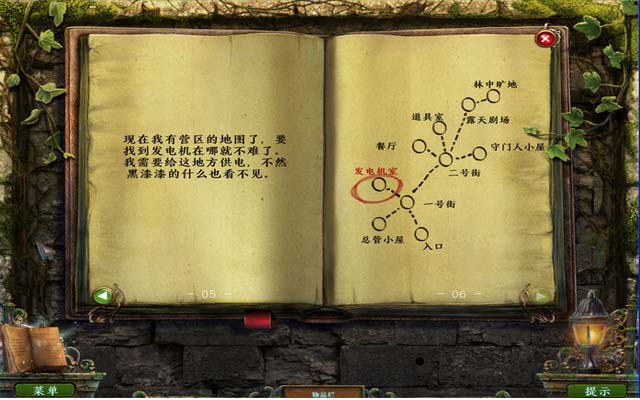 现在我有营区的地图了，要
找到发电机在哪就不难了。
我需要给这地方供电，不然
黑漆漆的什么也看不见。
林中旷地
道具室
露天剧场
餐厅
守门人小屋
二号街
发电机室
一号街
总管小屋
入口
05
06
菜单
物品栏
提示